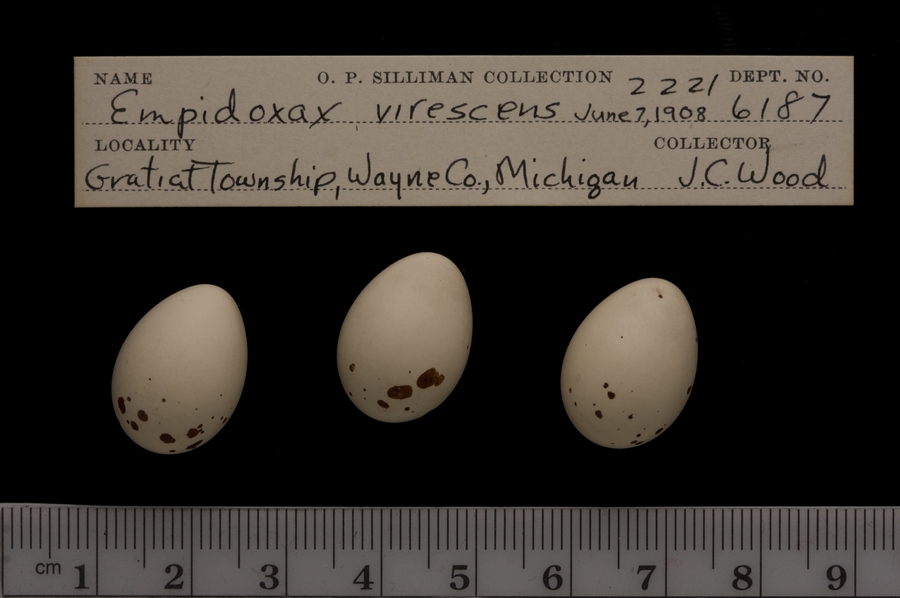 NAME O. P. SILLIMAN COLLECTION 2221 DEPT. NO.
Empidoxax virescens June 7, 1908 6187
LOCALITY COLLECTOR
Gratiat Township, Wayne Co., Michigan J.C. Wood
cm 1 2 3 4 5 6 7 8 9